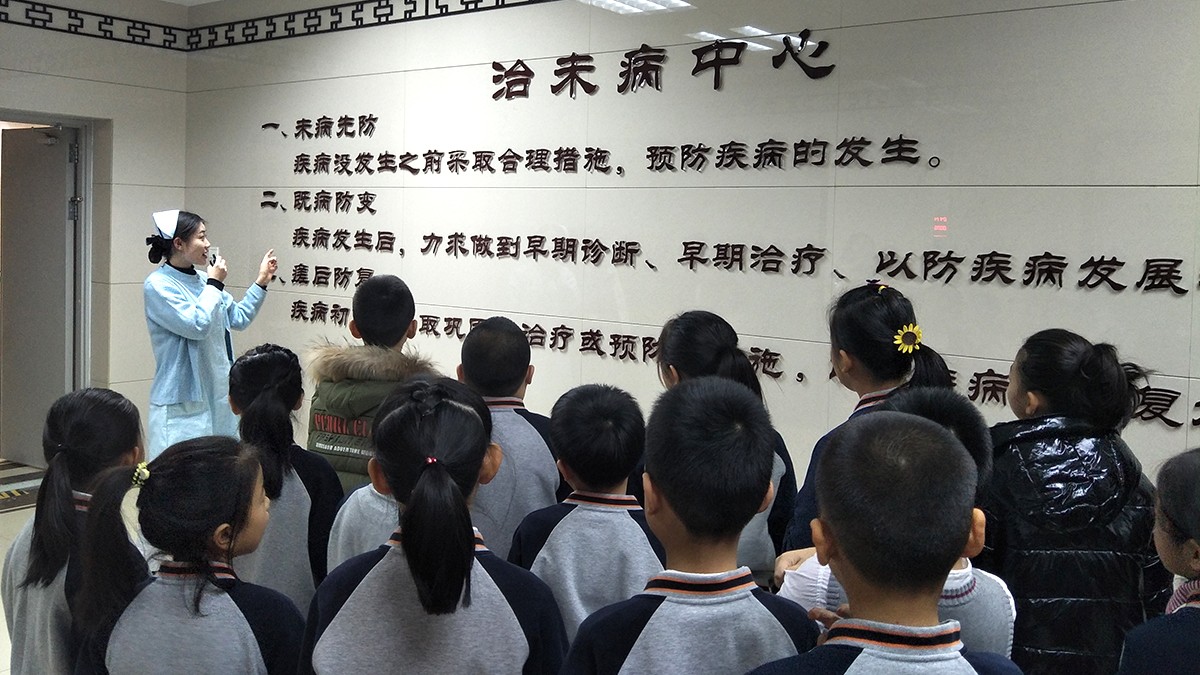 治未病中心
一、未病先防
疾病没发生之前采取合理措施，预防疾病的发生。
二、既病防变
疾病发生后，力求做到早期诊断、早期治疗、以防疾病发展
、瘥后防复
疾病初 取巩 治疗或预防 施， 疾病 复